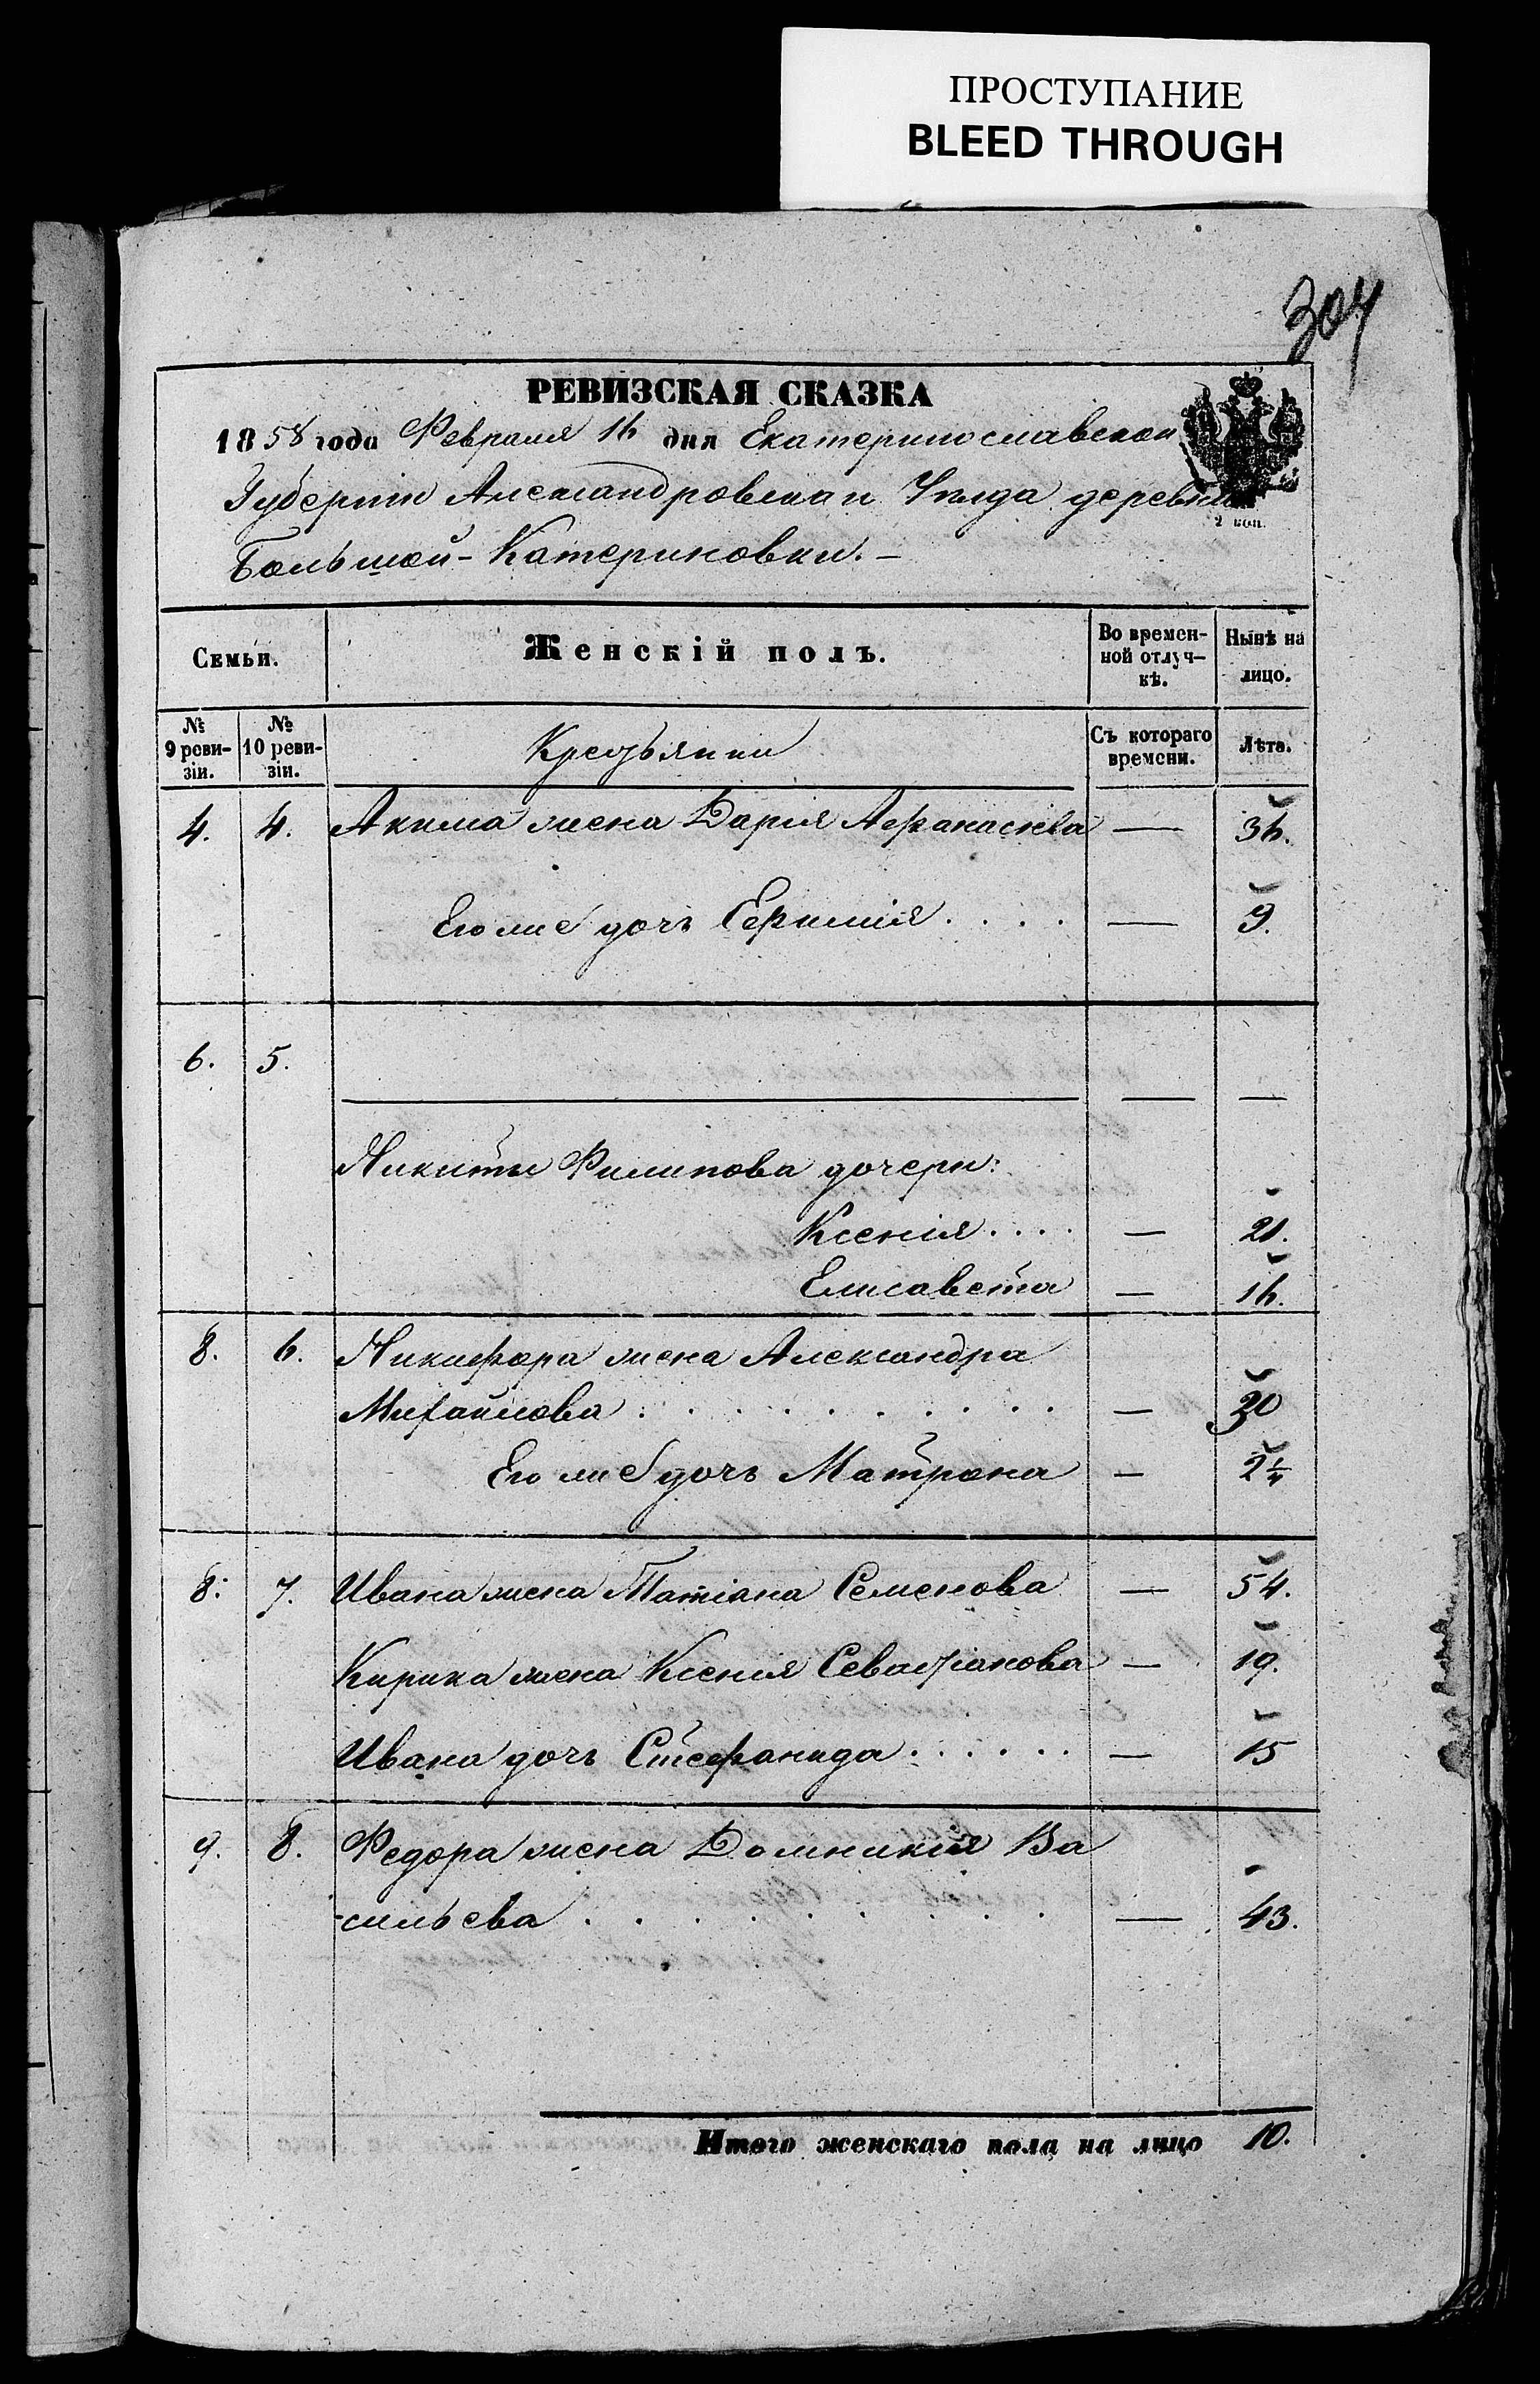 ПРОСТУПАНИЕ
BLEED THROUGH
304
РЕВИЗСКАЯ СКАЗКА
1858 года Февраля 16 дня Екатеринославской
Губерніи Александровскаго Уѣзда деревни
2 коп.
Большой-Катериновки.–
Семьи. Женскій полъ. Во времен- Нынѣ на
ной отлуч- лицо.
кѣ.
№ № Крестьянки Съ котораго Лѣта.
9 реви- 10 реви- времени.
зіи. зіи.
4. 4. Акима жена Дарія Афанасіева — 36.
Его же дочь Ефимія . . . . — 9.
6. 5.
— —
Никиты Филипова дочери:
Ксенія . . . . — 21.
Елисавета — 16.
8. 6. Никифора жена Александра
Михайлова . . . . . . . . . — 30
Его же дочь Матрона — 2¼
8. 7. Ивана жена Татіана Семенова — 54.
Кирика жена Ксенія Севастіанова — 19.
Ивана дочь Стефанида . . . . . . — 15
9. 8. Федора жена Домникія Ва
-сильева . . . . . . . . . — 43.
Итого женскаго пола на лицо 10.